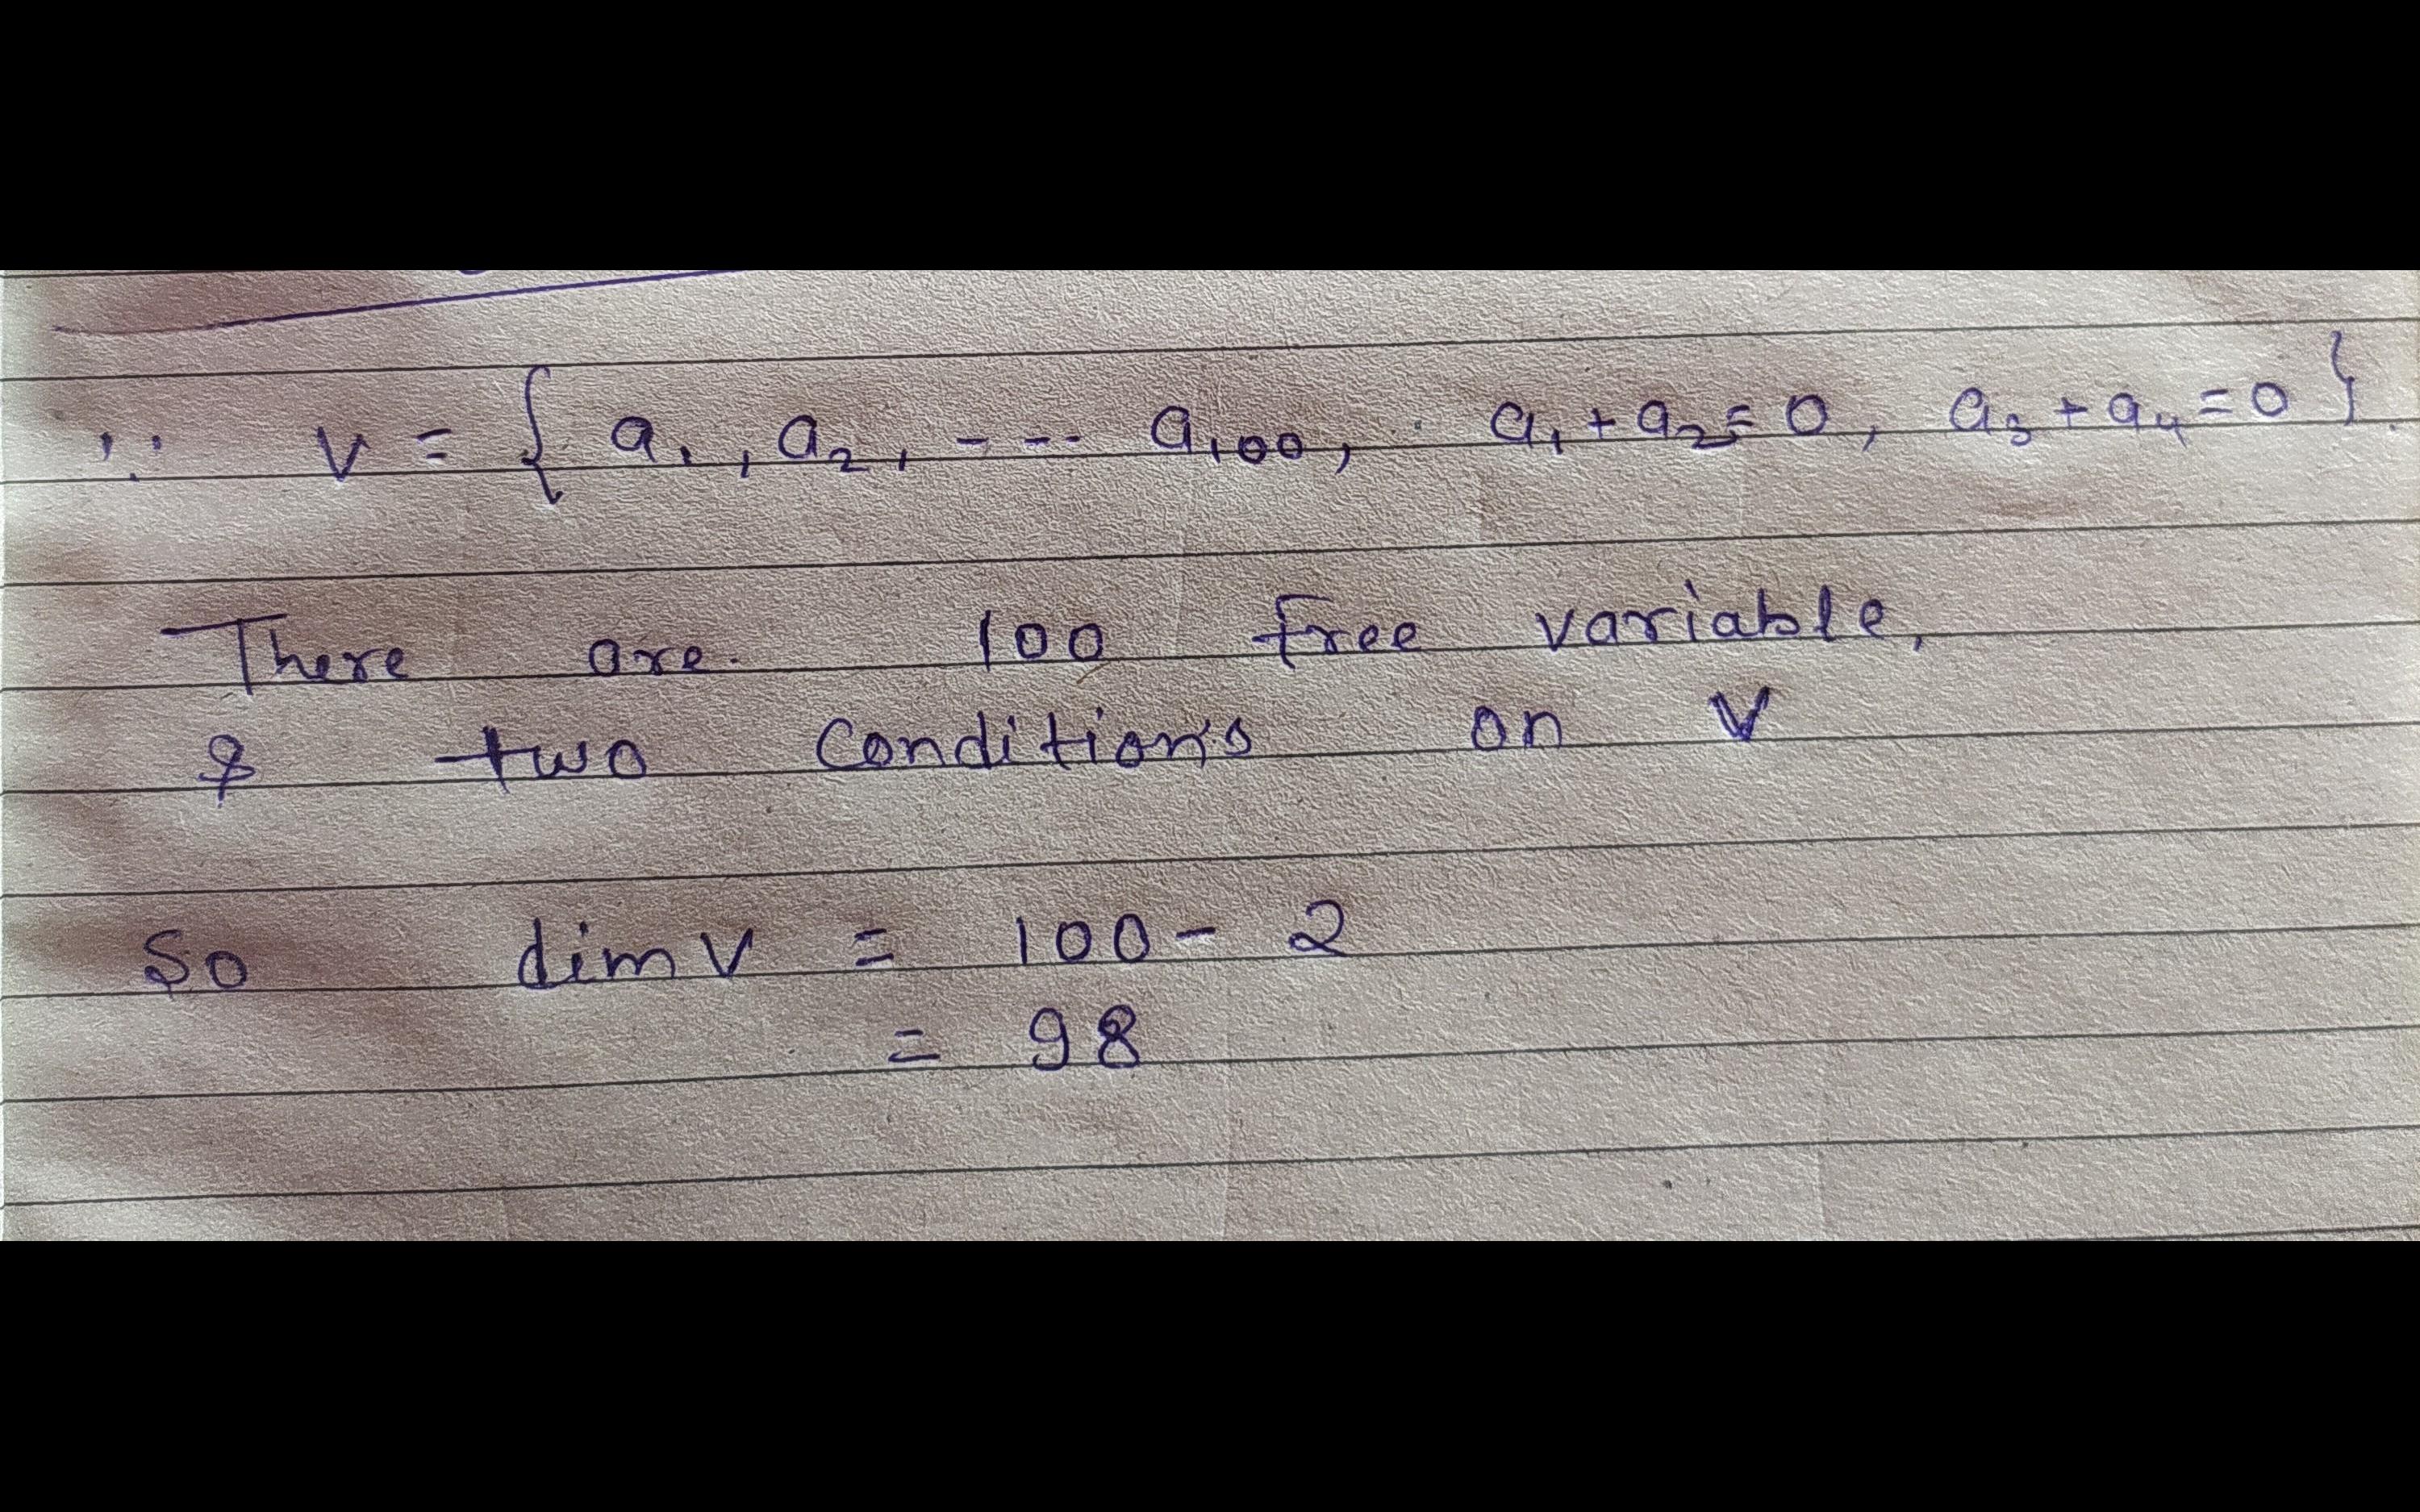 ∵ V = { a₁, a₂, - - - a₁₀₀, a₁ + a₂ = 0, a₃ + a₄ = 0 }.
There are 100 free variable,
& two conditions on V
So dim V = 100 - 2
= 98